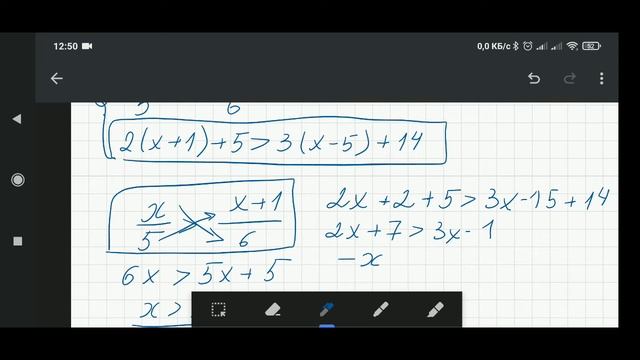 12:50
0,0 КБ/с
92
5 6
2(x+1)+5>3(x-5)+14
x/5 x+1/6
6x>5x+5
x>
2x+2+5>3x-15+14
2x+7>3x-1
-x